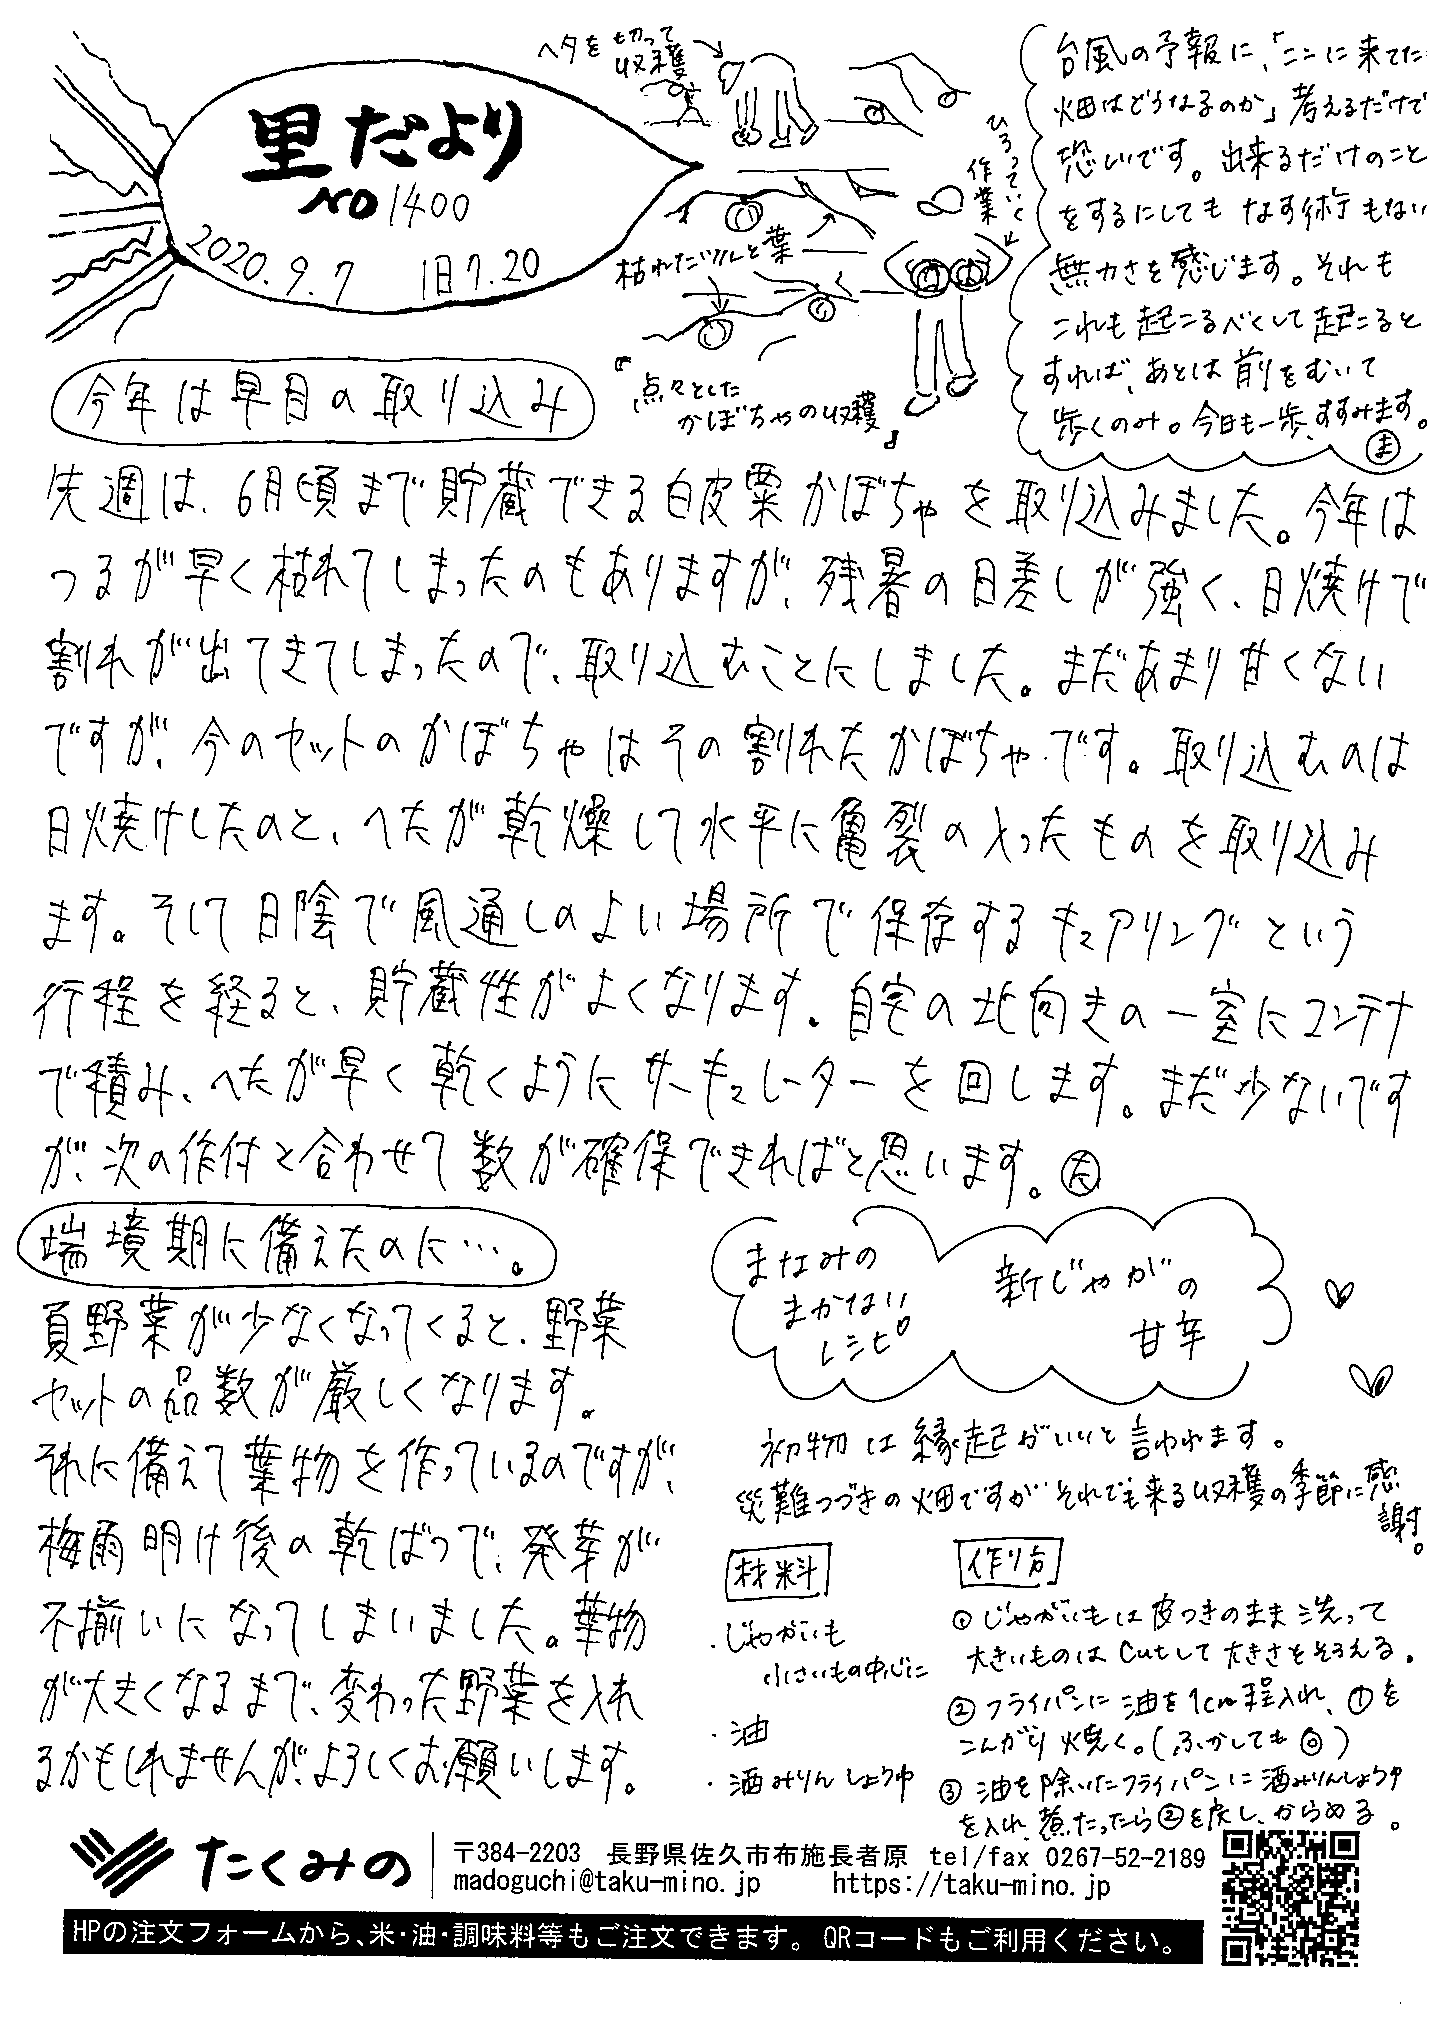 里だより
NO 1400
2020.9.7 旧7.20
ヘタを切って
収穫
ひろっていく
作業
枯れたツルと葉
『点々とした
かぼちゃの収穫』
台風の予報に、「ここに来てた
畑はどうなるのか」考えるだけで
恐いです。出来るだけのこと
をするにしてもなす術もない
無力さを感じます。それも
これも起こるべくして起こると
すれば、あとは前をむいて
歩くのみ。今日も一歩、すすみます。
ま
今年は早目の取り込み
先週は、6月頃まで貯蔵できる白皮栗かぼちゃを取り込みました。今年は
つるが早く枯れてしまったのもありますが、残暑の日差しが強く、日焼けで
割れが出てきてしまったので、取り込むことにしました。まだあまり甘くない
ですが、今のセットのかぼちゃはその割れたかぼちゃです。取り込むのは
日焼けしたのと、へたが乾燥して水平に亀裂の入ったものを取り込み
ます。そして日陰で風通しのよい場所で保存するキュアリングという
行程を経ると、貯蔵性がよくなります。自宅の北向きの一室にコンテナ
で積み、へたが早く乾くようにサーキュレーターを回します。まだ少ないです
が、次の作付と合わせて数が確保できればと思います。太
端境期に備えたのに…。
夏野菜が少なくなってくると、野菜
セットの品数が厳しくなります。
それに備えて葉物を作っているのですが、
梅雨明け後の乾ばつで、発芽が
不揃いになってしまいました。葉物
が大きくなるまで、変わった野菜を入れ
るかもしれませんが、よろしくお願いします。
まなみの
まかない
レシピ
新じゃがの
甘辛
初物は縁起がいいと言われます。
災難つづきの畑ですがそれでも来る収穫の季節に感
謝。
材料
・じゃがいも
小さいもの中心に
・油
・酒みりんしょうゆ
作り方
①じゃがいもは皮つきのまま洗って
大きいものはCutして大きさをそろえる。
②フライパンに油を1cm程入れ、①を
こんがり焼く。(ふかしても◎)
③油を除いたフライパンに酒みりんしょうゆ
を入れ、煮たったら②を戻し、からめる。
たくみの
〒384-2203 長野県佐久市布施長者原 tel/fax 0267-52-2189
madoguchi@taku-mino.jp https://taku-mino.jp
HPの注文フォームから、米・油・調味料等もご注文できます。QRコードもご利用ください。